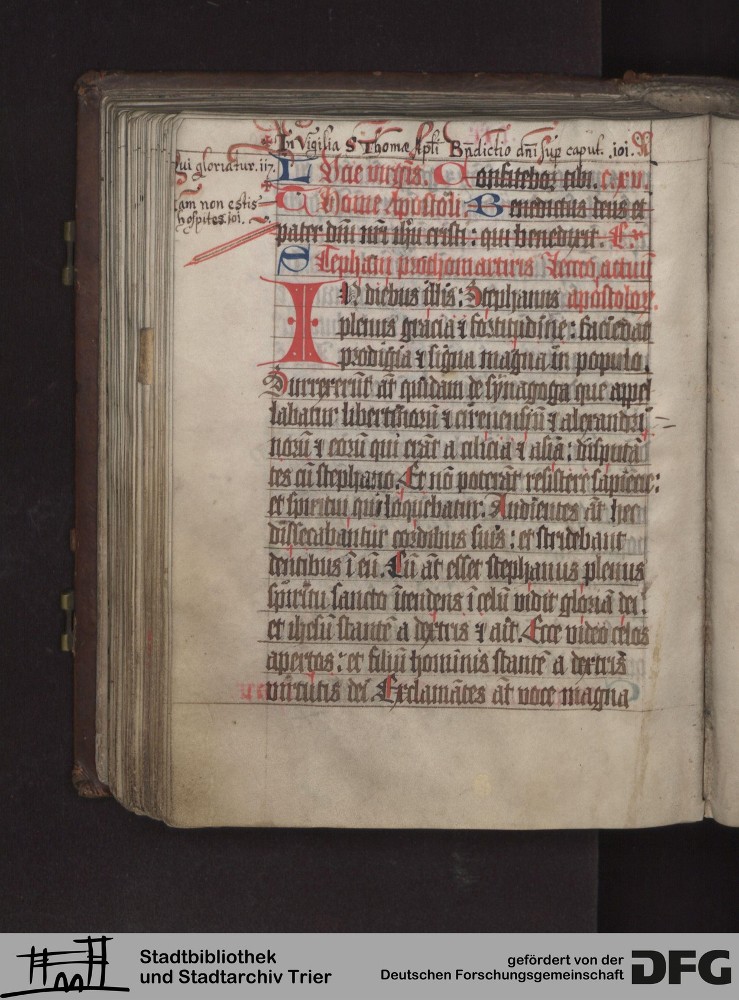 In Vigilia S Thomæ Apli Bndictio dni sup caput. .ioi.
qui gloriatur. .117.
Lucie uirgīs. Confitebor tibi. c.xv.
iam non estis
hospites .ioi.
Thome Apostoli. Benedictus deus et
pater dni nri ihu cristi: qui benedixit.
Stephani prothomartiris Lectō actuū
IN diebus illis: Stephanus apostoloꝝ.
plenus gracia ⁊ fortitudine: faciebat
prodigia ⁊ signa magna in populo.
Surrexerūt āt quidam de synagoga que appel
labatur libertīnorū ⁊ cirenensiū ⁊ alexandri
norū ⁊ eorū qui erāt a cilicia ⁊ asia: disputā
tes cū stephano. Et nō poterāt resistere sapiēcie:
et spiritui qui loquebatur. Audientes āt hec
dissecabantur cordibus suis: et stridebant
dentibus ī eū. Cū āt esset stephanus plenus
spiritu sancto ītendens ī celū vidit gloriā dei:
et ihesū stantē a dextris ⁊ ait. Ecce video celos
apertos: et filiū hominis stantē a dextris
virtutis dei. Exclamātes āt voce magna
Stadtbibliothek
und Stadtarchiv Trier
gefördert von der
Deutschen Forschungsgemeinschaft
DFG